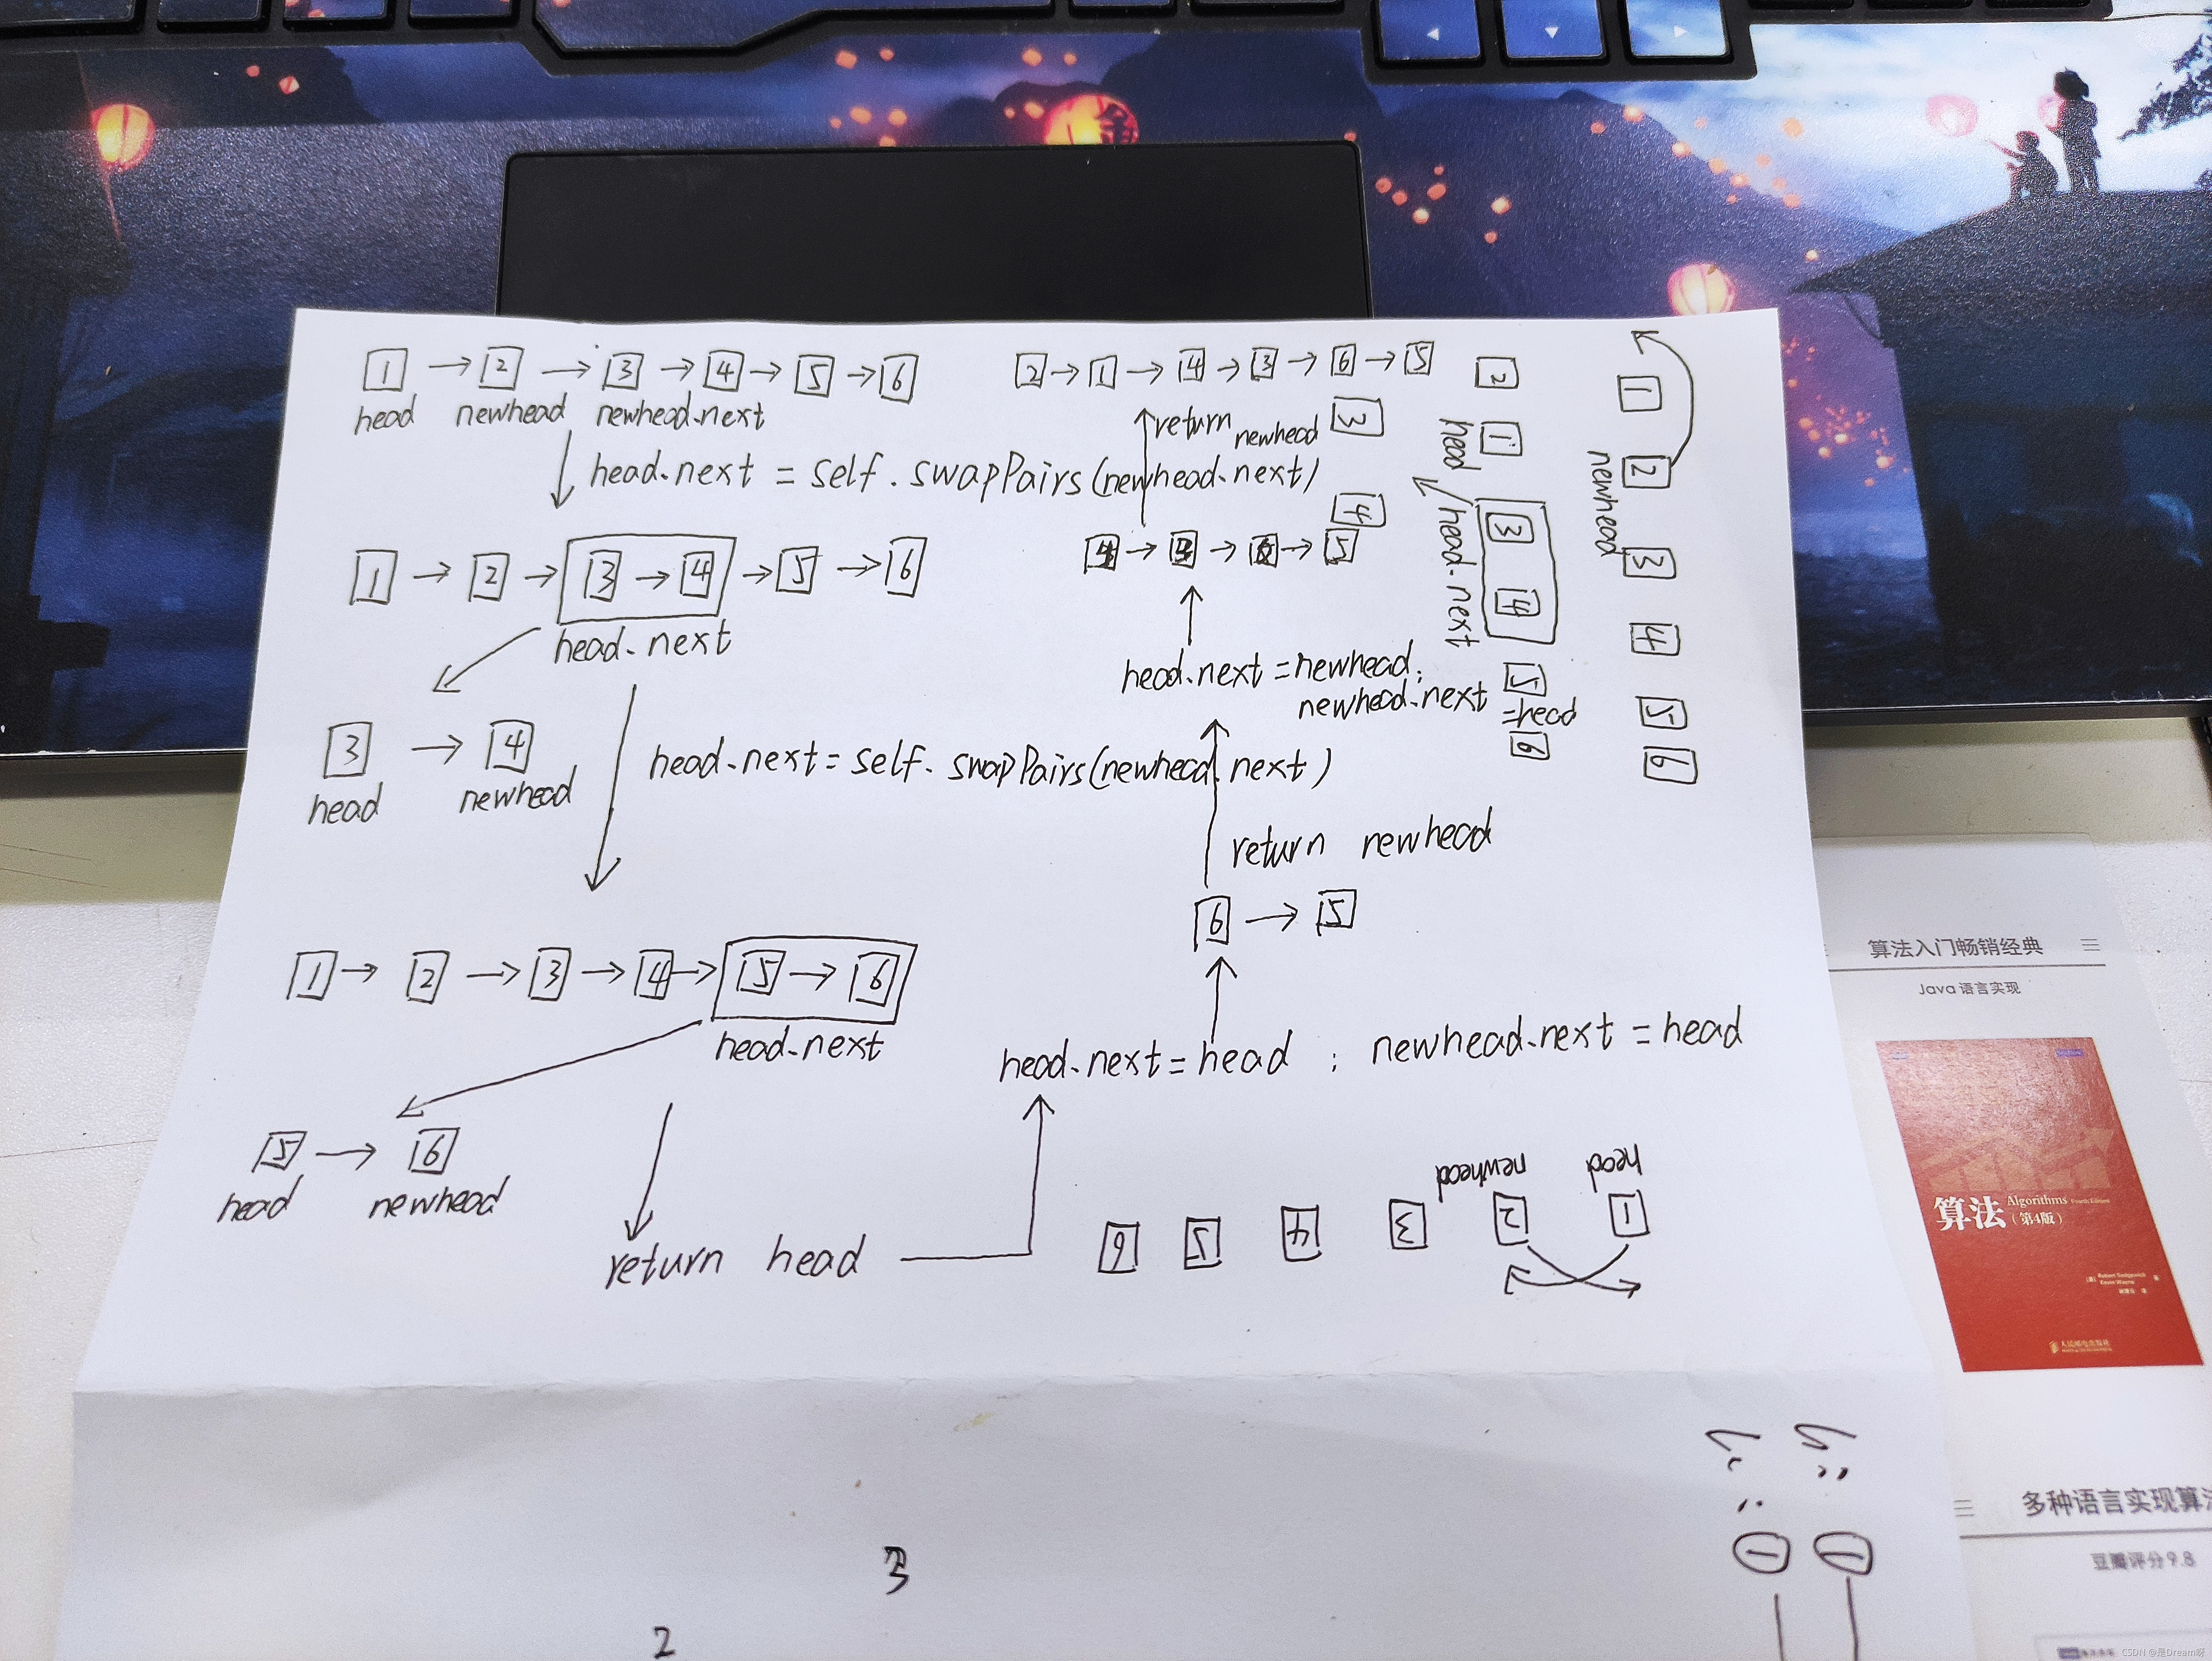 1 → 2 → 3 → 4 → 5 → 6
head newhead newhead.next
head.next = self.swapPairs(newhead.next)
1 → 2 → 3 → 4 → 5 → 6
head.next
3 → 4
head newhead
head.next = self.swapPairs(newhead.next)
1 → 2 → 3 → 4 → 5 → 6
head.next
5 → 6
head newhead
return head
head.next = head ; newhead.next = head
6 → 5
return newhead
head.next = newhead;
newhead.next
= head
→ → → 5
return newhead
2 → 1 → 4 → 3 → 6 → 5
3
4
2
1
head
3
4
head.next
5
6
1
2
newhead
3
4
5
6
head
newhead
1
2
3
4
5
6
3
2
金
算法入门畅销经典
Java 语言实现
算法
Algorithms Fourth Edition
(第4版)
Robert Sedgewick
Kevin Wayne
人民邮电出版社
多种语言实现算法
豆瓣评分9.8
CSDN @是Dream呀